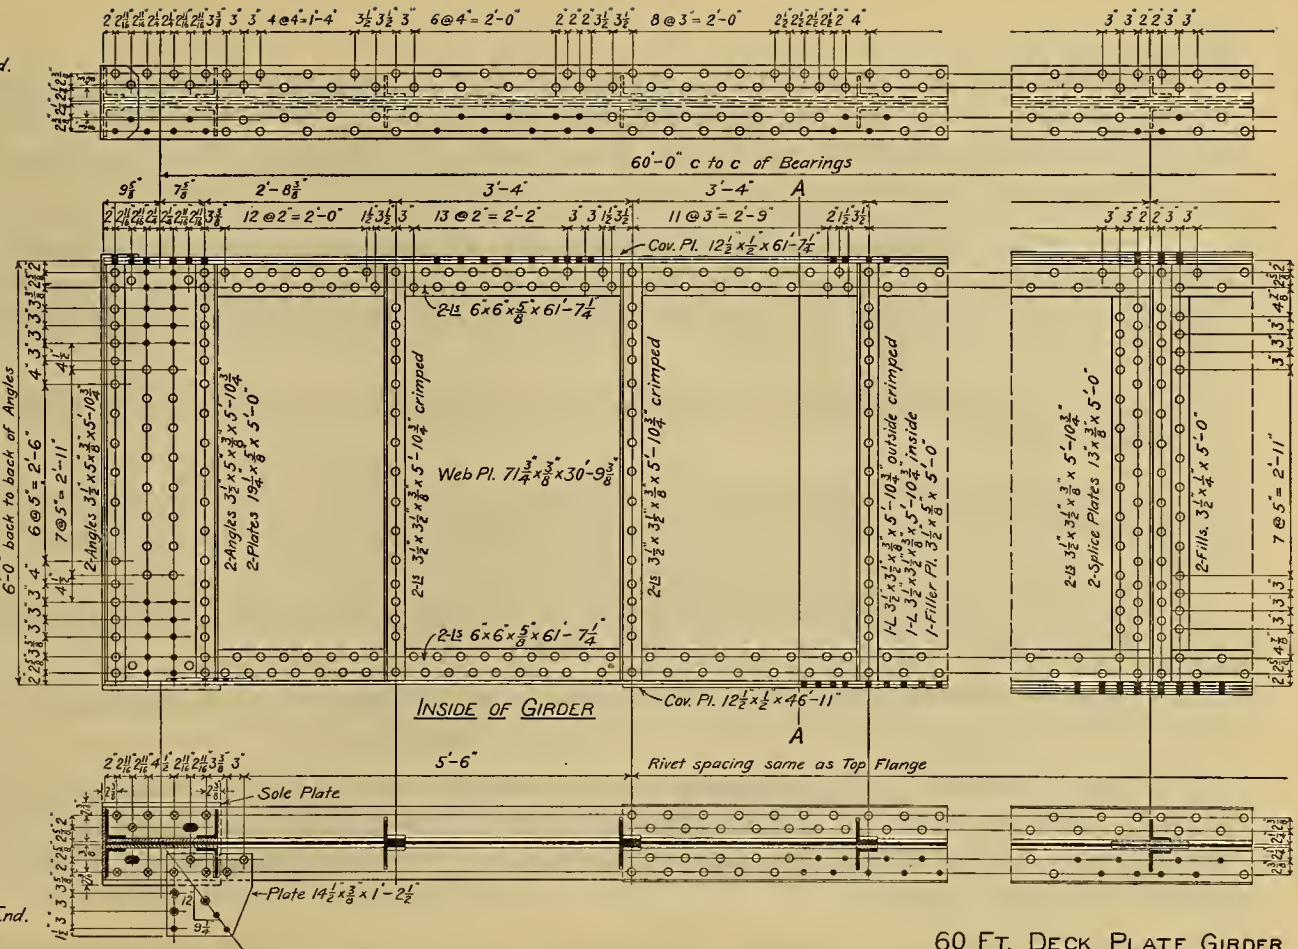 2" 2 11/16" 2 11/16" 2 1/4" 2 1/4" 2 11/16" 2 11/16" 3 3/8" 3" 3" 4@4"=1'-4" 3 1/2" 3 1/2" 3" 6@4"=2'-0" 2" 2" 2" 3 1/2" 3 1/2" 8@3"=2'-0" 2 1/2" 2 1/2" 2 1/2" 2 1/2" 2" 4" 3" 3" 2" 2" 3" 3"
d.
60'-0" c to c of Bearings
9 5/8" 7 5/8" 2'-8 3/8" 3'-4" 3'-4" A
2" 2 11/16" 2 11/16" 2 1/4" 2 1/4" 2 11/16" 2 11/16" 3 3/8" 12@2"=2'-0" 1 1/2" 3 1/2" 3" 13@2"=2'-2" 3" 3" 1 1/2" 3 1/2" 11@3"=2'-9" 2" 1 1/2" 3 1/2" 3" 3" 2" 2" 3" 3"
Cov. Pl. 12 1/2" x 1/2" x 61'-7 1/4"
2-Ls 6" x 6" x 5/8" x 61'-7 1/4"
6'-0" back to back of Angles
6@5"=2'-6"
7@5"=2'-11"
2-Angles 3 1/2" x 5" x 3/8" x 5'-10 3/4"
2-Angles 3 1/2" x 5" x 3/8" x 5'-10 3/4"
2-Plates 19 1/4" x 5/8" x 5'-0"
2-Ls 3 1/2" x 3 1/2" x 3/8" x 5'-10 3/4" crimped
Web Pl. 71 3/4" x 3/8" x 30'-9 3/8"
2-Ls 3 1/2" x 3 1/2" x 3/8" x 5'-10 3/4" crimped
1-L 3 1/2" x 3 1/2" x 3/8" x 5'-10 3/4" outside crimped
1-L 3 1/2" x 3 1/2" x 3/8" x 5'-10 3/4" inside
1-Filler Pl. 3 1/2" x 5/8" x 5'-0"
2-Ls 3 1/2" x 3 1/2" x 3/8" x 5'-10 3/4"
2-Splice Plates 13" x 3/8" x 5'-0"
2-Fills. 3 1/2" x 1/4" x 5'-0"
7@5"=2'-11"
2-Ls 6" x 6" x 5/8" x 61'-7 1/4"
INSIDE OF GIRDER
Cov. Pl. 12 1/2" x 1/2" x 46'-11"
A
2" 2 11/16" 2 11/16" 4 1/2" 2 11/16" 2 11/16" 3 3/8" 3" 5'-6" Rivet spacing same as Top Flange
Sole Plate
Plate 14 1/2" x 3/8" x 1'-2 1/2"
12
9 1/4"
End.
60 FT. DECK PLATE GIRDER